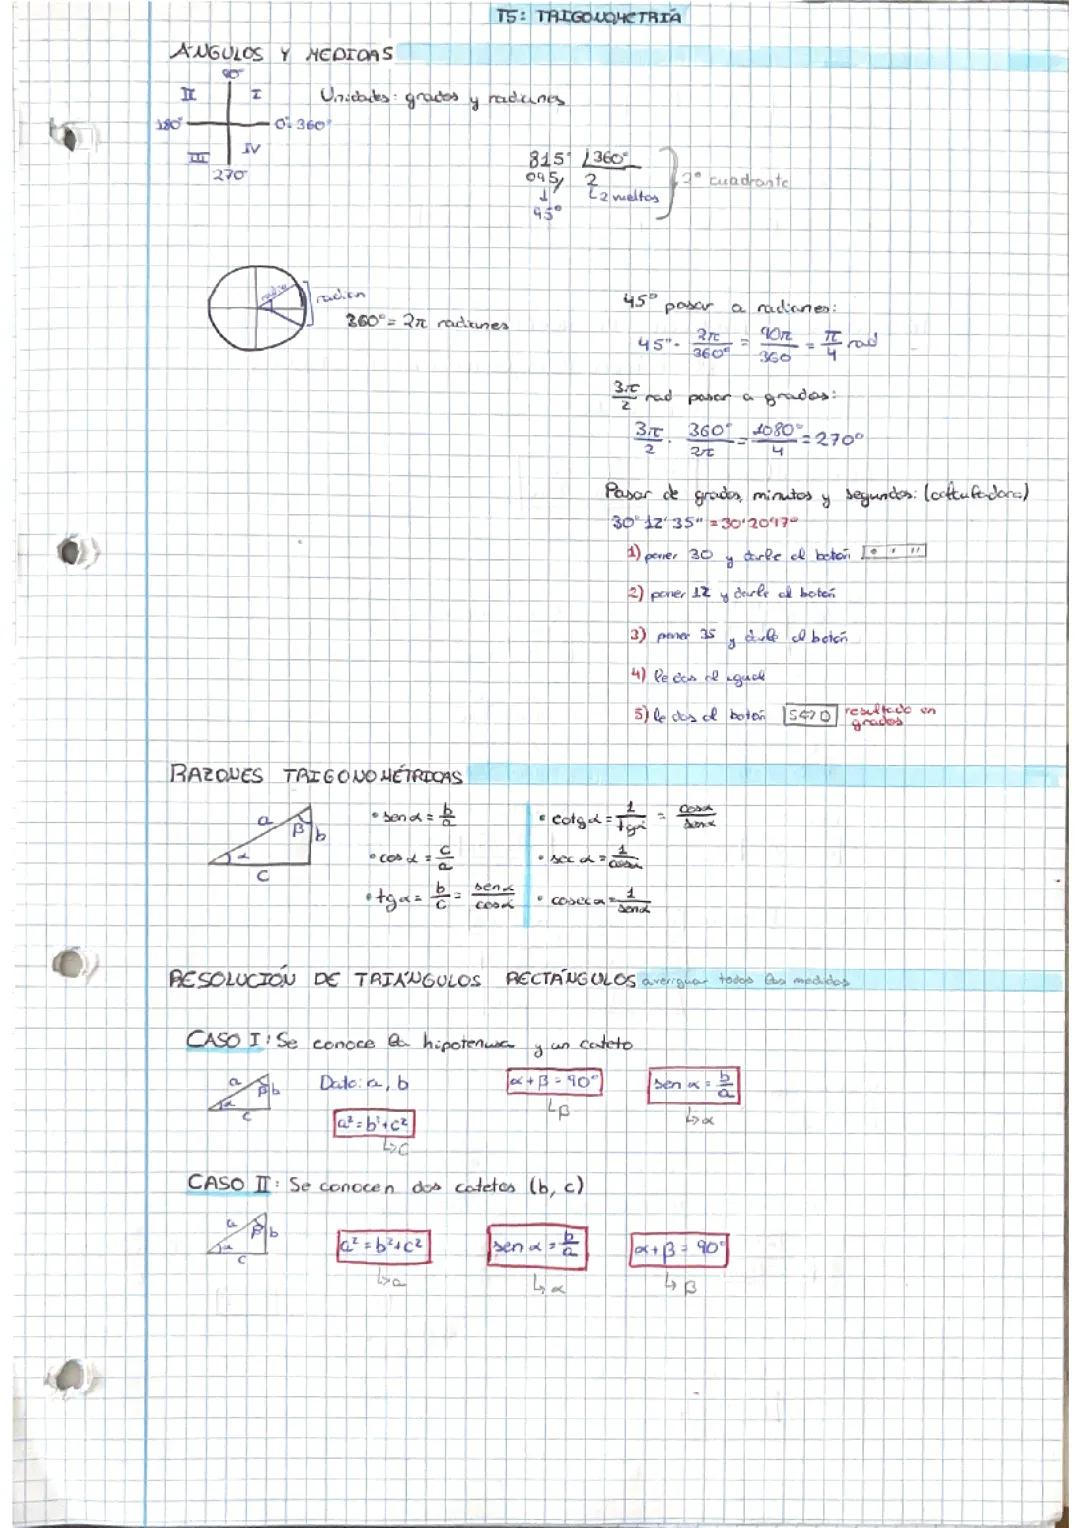 T5: TRIGONOMETRÍA
ÁNGULOS Y MEDIDAS
90°
II I
Unidades: grados y radianes
180° 0° 360°
III IV
270°
815° 360°
095 2
2 vueltas
95°
2º cuadrante
radio
radian
360° = 2π radianes
45° pasar a radianes:
45° · 2π/360° = 90π/360 = π/4 rad
3π/2 rad pasar a grados:
3π/2 · 360°/2π = 1080°/4 = 270°
Pasar de grados, minutos y segundos: (calculadora)
30° 12' 35" = 30'2097°
1) poner 30 y darle al botón ° ' "
2) poner 12 y darle al botón
3) poner 35 y darle al botón
4) le das al igual
5) le das al botón S⇔D resultado en grados
RAZONES TRIGONOMÉTRICAS
a β b
α
c
• sen α = b/a
• cos α = c/a
• tg α = b/c = sen α/cos α
• cotg α = 1/tg α = cos α/sen α
• sec α = 1/cos α
• cosec α = 1/sen α
RESOLUCIÓN DE TRIÁNGULOS RECTÁNGULOS averiguar todas las medidas
CASO I: Se conoce la hipotenusa y un cateto
a β b
α
c
Dato: a, b
a² = b² + c²
↳ c
α + β = 90°
↳ β
sen α = b/a
↳ α
CASO II: Se conocen dos catetos (b, c)
a β b
α
c
a² = b² + c²
↳ a
sen α = b/a
↳ α
α + β = 90°
↳ β